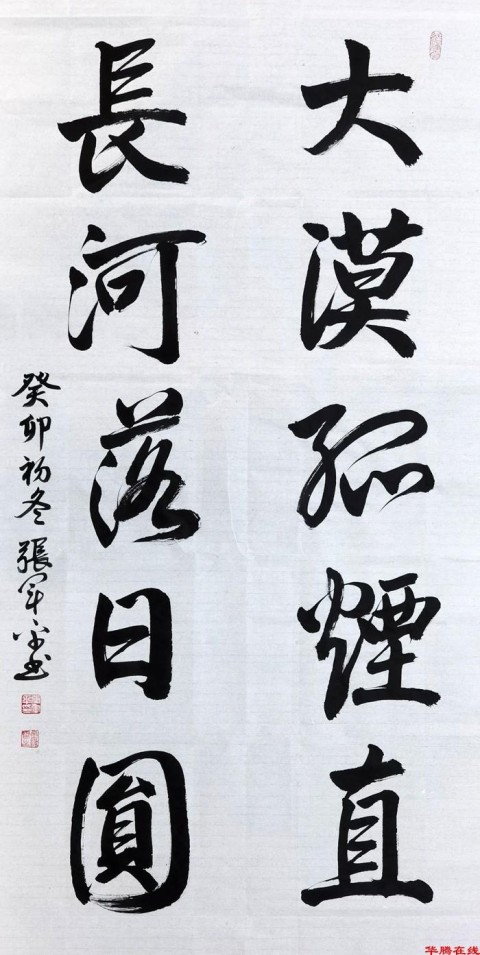 大漠孤煙直
長河落日圓
癸卯初冬張軍平書
华腾在线